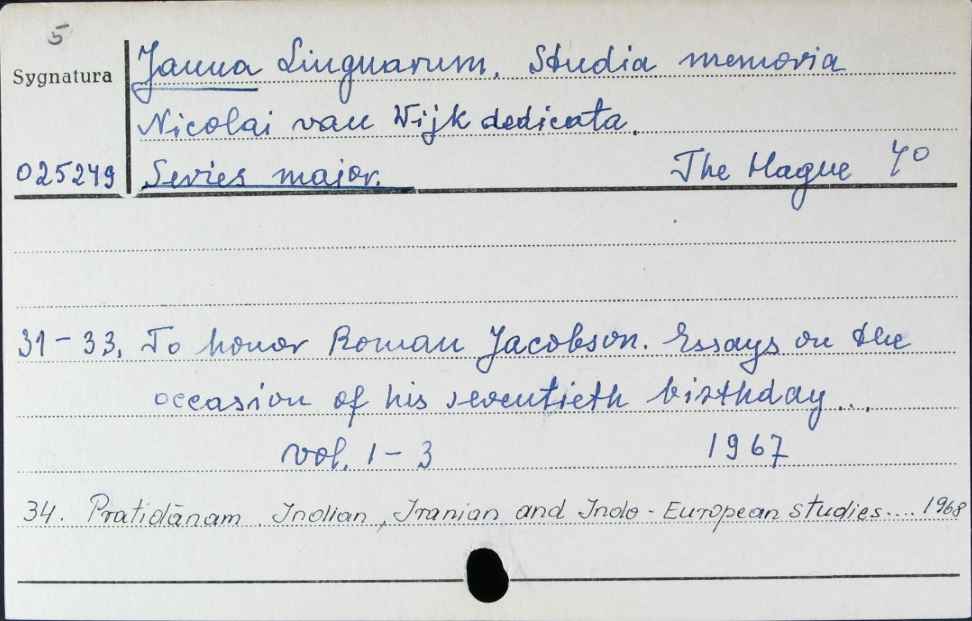 5
Sygnatura Janua Linguarum. Studia memoria
Nicolai van Wijk dedicata.
025249 Series major. The Hague 4°
31-33. To honor Roman Jacobson. Essays on the
occasion of his seventieth birthday...
vol. 1-3 1967
34. Pratidānam. Indian, Iranian and Indo-European studies.... 1968